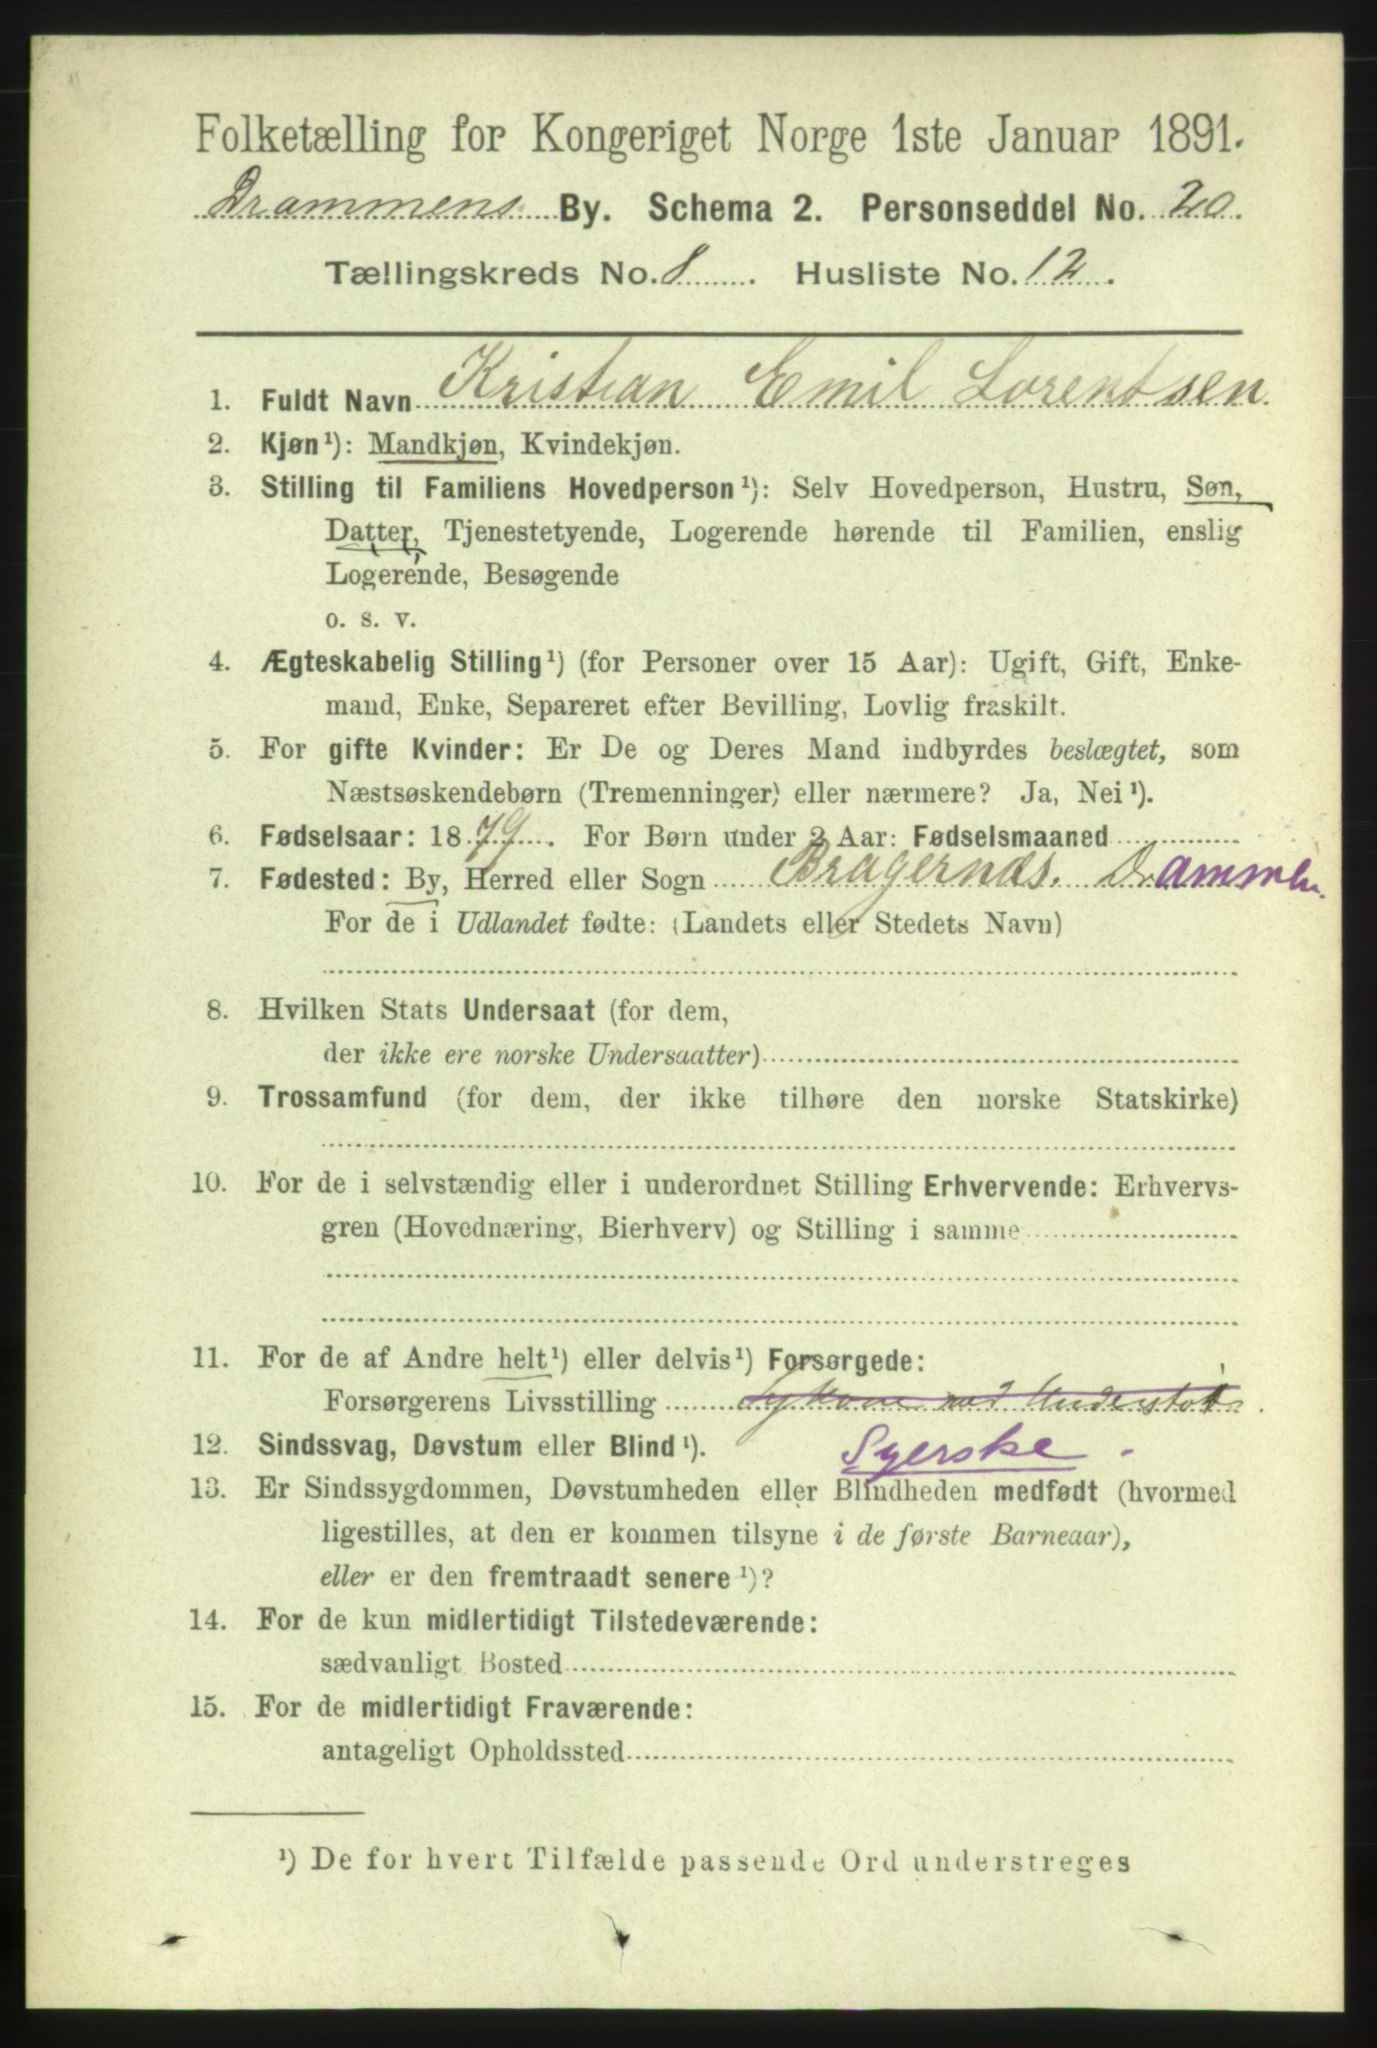 Folketælling for Kongeriget Norge 1ste Januar 1891.
Drammens By. Schema 2. Personseddel No. 20.
Tællingskreds No. 8. Husliste No. 12.
1. Fuldt Navn Kristian Emil Lorentsen.
2. Kjøn¹): Mandkjøn, Kvindekjøn.
3. Stilling til Familiens Hovedperson¹): Selv Hovedperson, Hustru, Søn,
Datter, Tjenestetyende, Logerende hørende til Familien, enslig
Logerende, Besøgende
o. s. v.
4. Ægteskabelig Stilling¹) (for Personer over 15 Aar): Ugift, Gift, Enke-
mand, Enke, Separeret efter Bevilling, Lovlig fraskilt.
5. For gifte Kvinder: Er De og Deres Mand indbyrdes beslægtet, som
Næstsøskendebørn (Tremenninger) eller nærmere? Ja, Nei¹).
6. Fødselsaar: 1879. For Børn under 2 Aar: Fødselsmaaned
7. Fødested: By, Herred eller Sogn Bragernæs. Drammen.
For de i Udlandet fødte: (Landets eller Stedets Navn)
8. Hvilken Stats Undersaat (for dem,
der ikke ere norske Undersaatter)
9. Trossamfund (for dem, der ikke tilhøre den norske Statskirke)
10. For de i selvstændig eller i underordnet Stilling Erhvervende: Erhvervs-
gren (Hovednæring, Bierhverv) og Stilling i samme
11. For de af Andre helt¹) eller delvis¹) Forsørgede:
Forsørgerens Livsstilling Sykone med Understöt.
12. Sindssvag, Døvstum eller Blind¹). Syerske.
13. Er Sindssygdommen, Døvstumheden eller Blindheden medfødt (hvormed
ligestilles, at den er kommen tilsyne i de første Barneaar),
eller er den fremtraadt senere¹)?
14. For de kun midlertidigt Tilstedeværende:
sædvanligt Bosted
15. For de midlertidigt Fraværende:
antageligt Opholdssted
¹) De for hvert Tilfælde passende Ord understreges